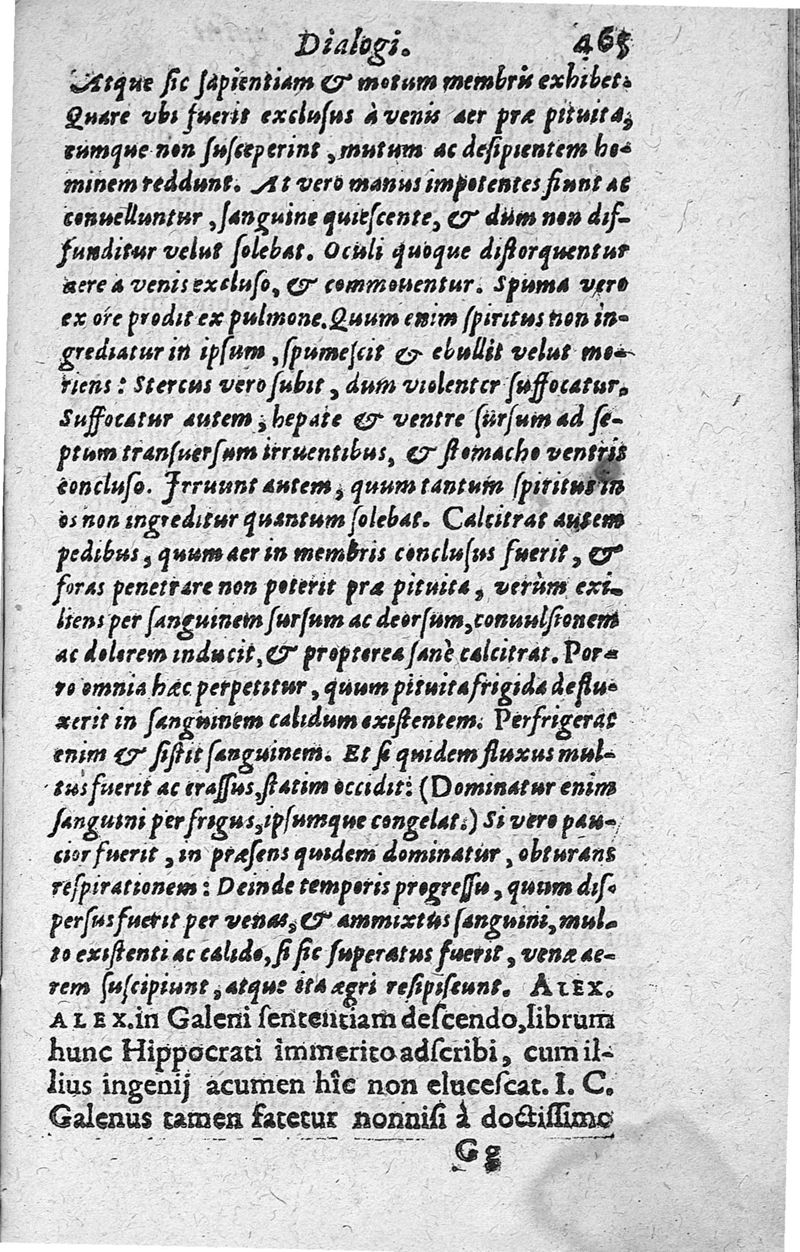 Dialogi. 465
Atque sic sapientiam & motum membris exhibet.
Quare vbi fuerit exclusus à venis aer præ pituita,
eumque non susceperint, mutum ac desipientem ho-
minem reddunt. At vero manus impotentes fiunt ac
conuelluntur, sanguine quiescente, & dum non dif-
funditur velut solebat. Oculi quoque distorquentur
aere a venis excluso, & commouentur. Spuma vero
ex ore prodit ex pulmone. Quum enim spiritus non in-
grediatur in ipsum, spumescit & ebullit velut mo-
riens: Stercus vero subit, dum violenter suffocatur.
Suffocatur autem, hepate & ventre sursum ad se-
ptum transuersum irruentibus, & stomacho ventris
concluso. Irruunt autem, quum tantum spiritus in
os non ingreditur quantum solebat. Calcitrat autem
pedibus, quum aer in membris conclusus fuerit, &
foras penetrare non poterit præ pituita, verùm exi-
liens per sanguinem sursum ac deorsum, conuulsionem
ac dolorem inducit, & propterea sanè calcitrat. Por-
ro omnia hæc perpetitur, quum pituita frigida deflu-
xerit in sanguinem calidum existentem. Perfrigerat
enim & sistit sanguinem. Et si quidem fluxus mul-
tus fuerit ac crassus, statim occidit: (Dominatur enim
sanguini per frigus, ipsumque congelat.) Si vero pau-
cior fuerit, in præsens quidem dominatur, obturans
respirationem: Deinde temporis progressu, quum dis-
persus fuerit per venas, & ammixtus sanguini, mul-
to existenti ac calido, si sic superatus fuerit, venæ ae-
rem suscipiunt, atque ita ægri resipiscunt. ALEX.
ALEX. in Galeni sententiam descendo, librum
hunc Hippocrati immerito adscribi, cum il-
lius ingenij acumen hîc non elucescat. I. C.
Galenus tamen fatetur nonnisi à doctissimo
Gg